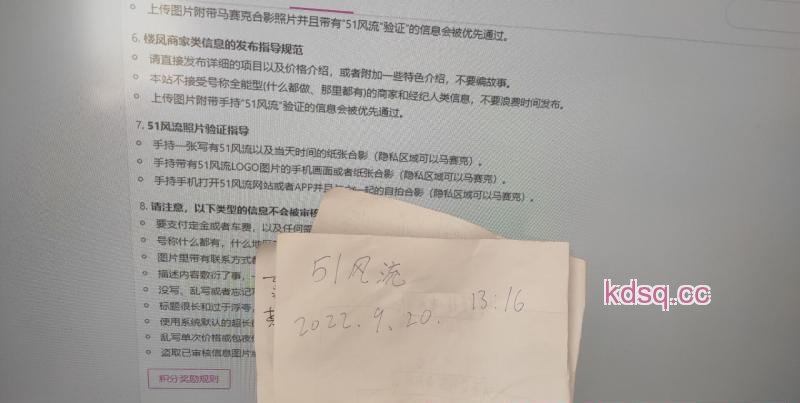 上传图片附带马赛克合影照片并且带有"51风流"验证"的信息会被优先通过。
6. 楼凤商家类信息的发布指导规范
请直接发布详细的项目以及价格介绍，或者附加一些特色介绍，不要编故事。
本站不接受号称全能型(什么都做、那里都有)的商家和经纪人类信息，不要浪费时间发布。
上传图片附带手持"51风流"验证的信息会被优先通过。
7. 51风流照片验证指导
手持一张写有51风流以及当天时间的纸张合影（隐私区域可以马赛克）。
手持带有51风流LOGO图片的手机画面或者纸张合影（隐私区域可以马赛克）。
手持手机打开51风流网站或者APP并且 一起的自拍合影（隐私区域可以马赛克）。
8. 请注意，以下类型的信息不会被审核
要支付定金或者车费，以及任何需
号称什么都有，什么地区
图片里带有联系方式都
描述内容敷衍了事，一
没写、乱写或者忘记写
标题很长和过于浮夸
使用系统默认的超长
乱写单次价格或包夜
盗取已审核信息图片
积分奖励规则
51风流
2022.9.20. 13:16
kdsq.cc